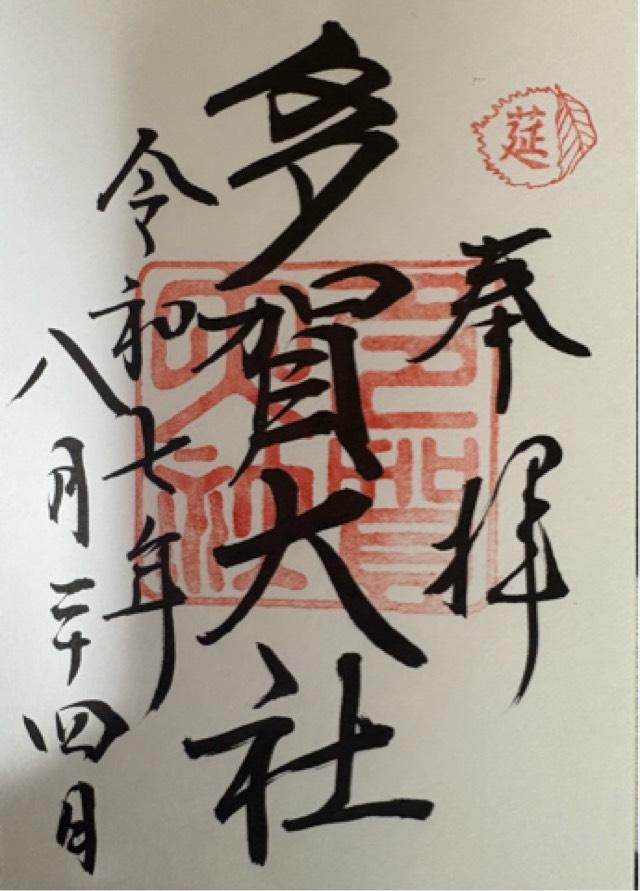 莚
奉拝
多賀大社
多賀
大社
令和七年
八月二十四日